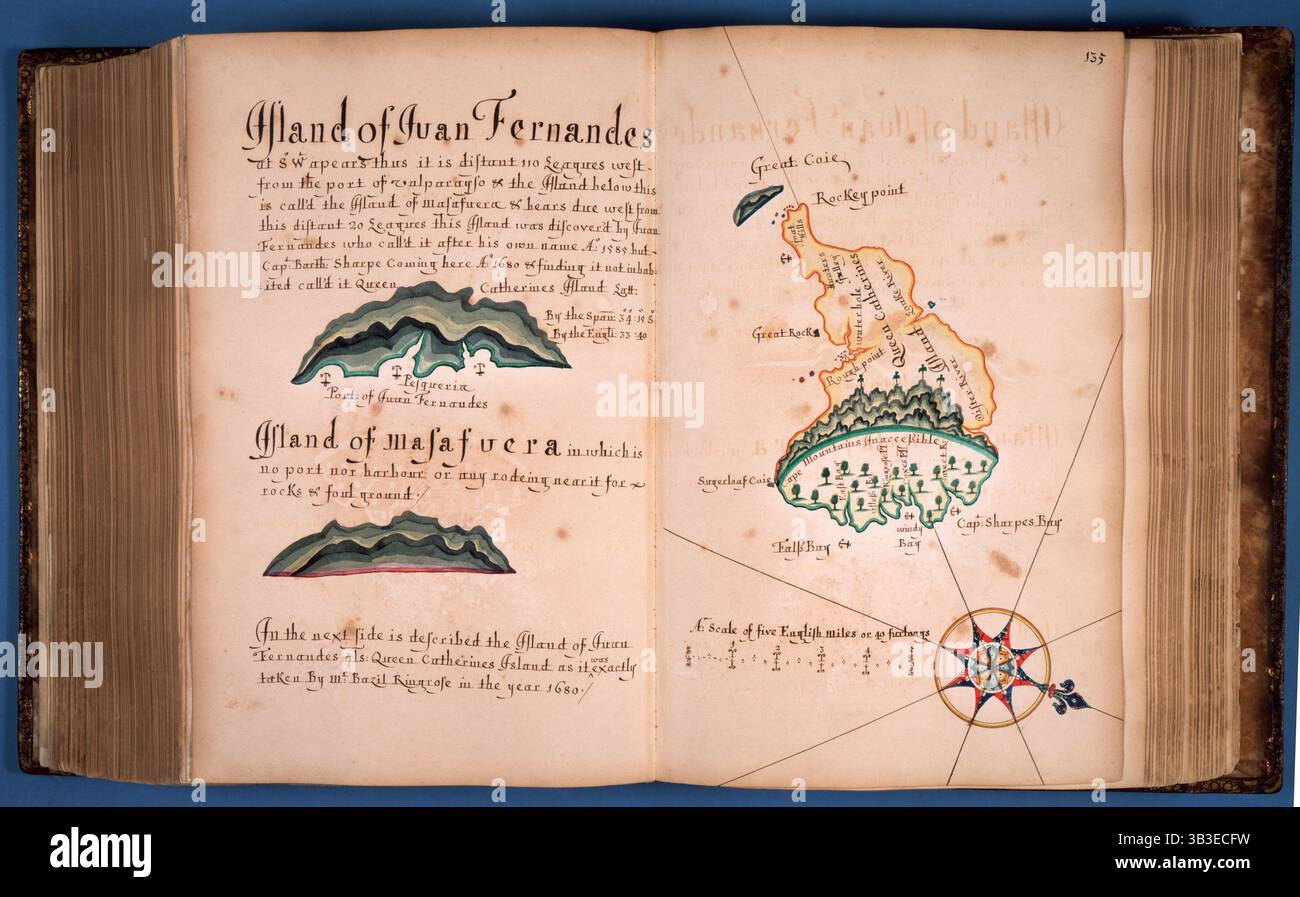 Island of Juan Fernandes
at S.W. apears thus it is distant 110 Leagues west
from the port of valparayso & the Island below this
is call'd the Island of masafuera & bears due west from
this distant 20 Leagues this Island was discover'd by Juan
Fernandes who call'd it after his own name Aº: 1585 but
Cap: Barth: Sharpe Coming here Aº 1680 & finding it not inhab
ited call'd it Queen Catherines Island Latt:
By the Span: 34:15 S.
By the Engli: 33:40
Pesqueria
Port: of Juan Fernandes
Island of masafuera in which is
no port nor harbour or any rodeing near it for
rocks & foul ground
In the next side is described the Island of Juan
Fernandes als: Queen Catherines Island as it was exactly
taken By mr. Bazil Ringrose in the year 1680
135
Great Coie
Rockey point
Hills
Gulley
waterhole
Queen Catherines Island
River
Great Rock
Rough point
River
Mountains Inaccessible
Cape
East Bay
Sugerloaf Coie
Cap: Sharpes Bay
windy Bay
Fals Bay
A: Scale of five English miles or 40 furlongs
1 2 3 4
alamy
Image ID: 3B3ECFW
www.alamy.com